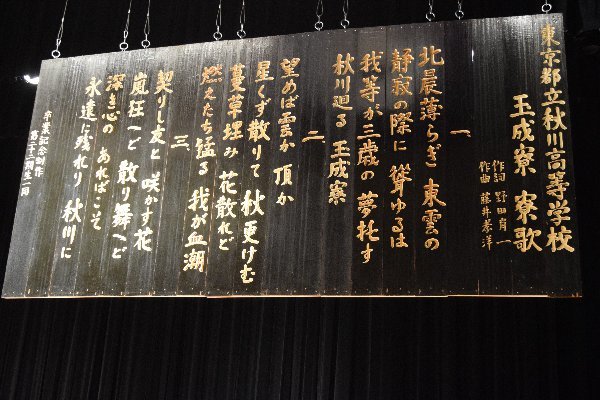 東京都立秋川高等学校
玉成寮 寮歌
作詞 野田育一
作曲 藤井孝洋
一
北晨薄らぎ 東雲の
静寂の際に 聳ゆるは
我等が三歳の 夢托す
秋川廻る 玉成寮
二
望めば雲か 頂か
星くず散りて 秋更けむ
蔓草埋み 花散れど
燃えたち猛る 我が血潮
三
契りし友と 咲かす花
嵐狂へど 散り舞へど
深き心の あればこそ
永遠に残れり 秋川に
卒業記念制作
第二十二期生一同